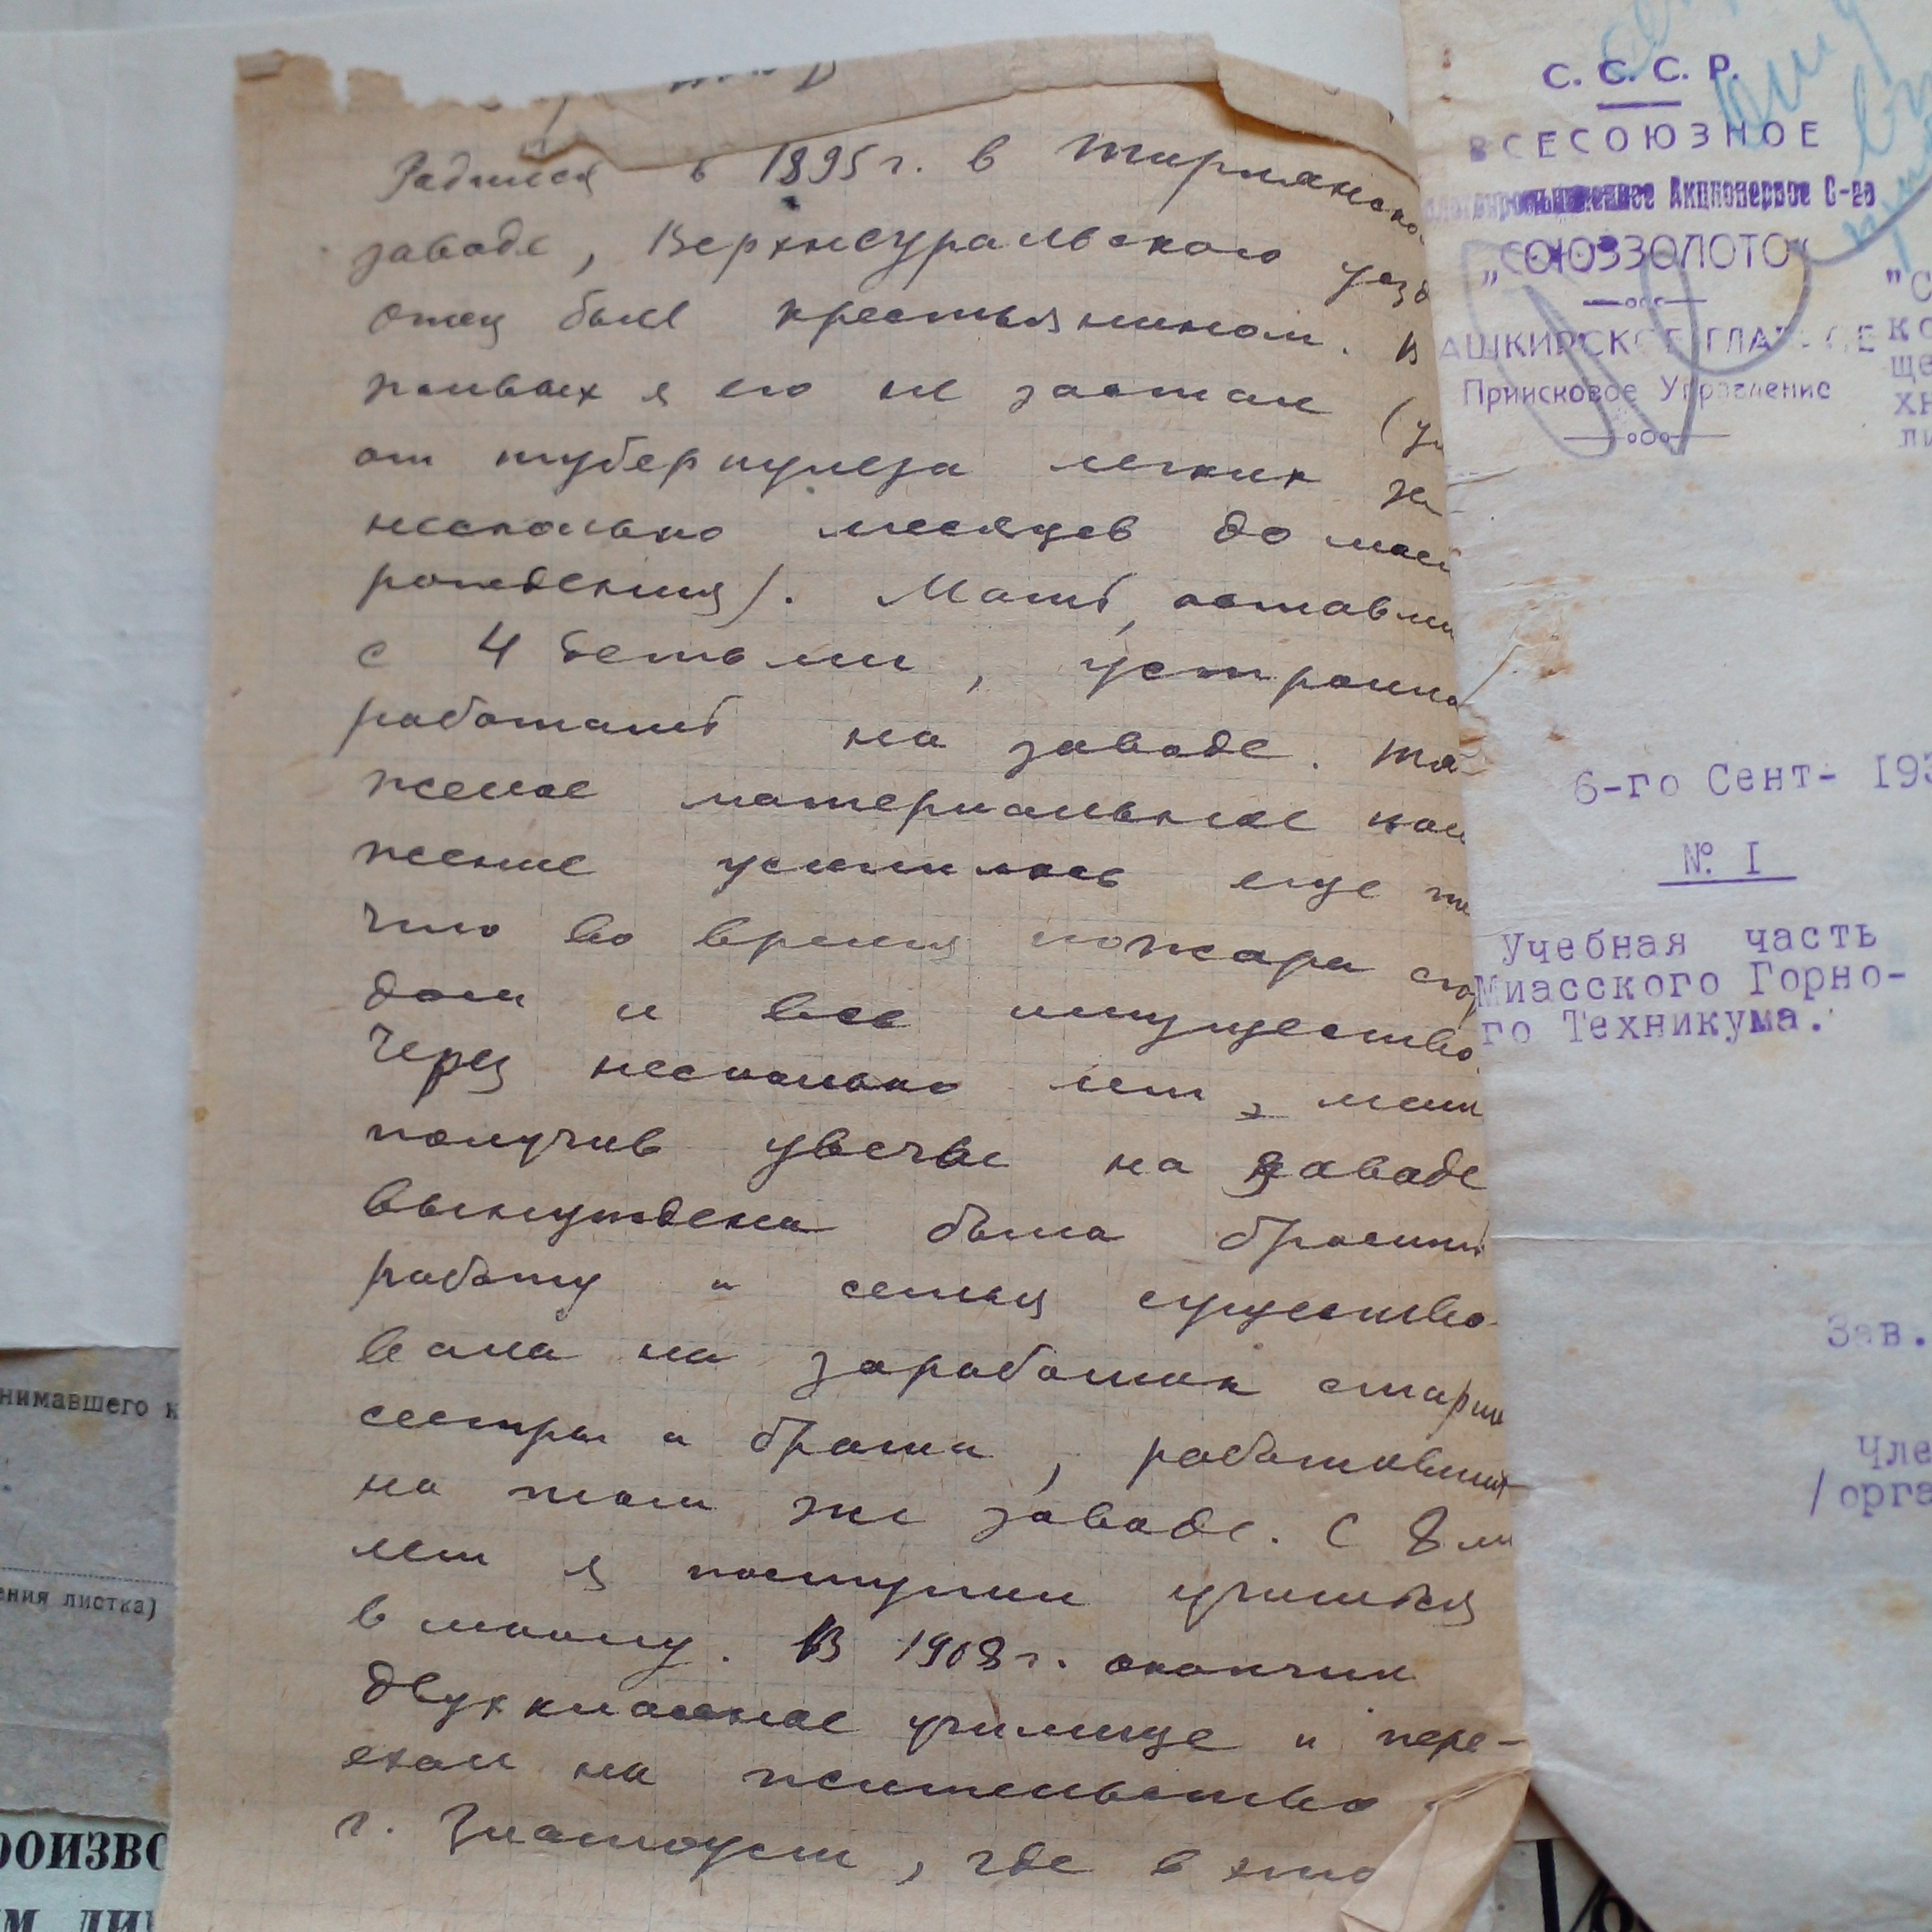 Радился в 1895 г. в Тирлянско
заводе, Верхнеуральского уезд
отец был крестьянином. В
живых я его не застал (ум
от туберкулеза легких за
несколько месяцев до мое
рождения). Мать, оставши
с 4 детьми, устроила
работать на заводе. Тя-
желое материальное поло
жение усилилось еще те
что во время пожара сго
дом и все имущество.
Через несколько лет, мать
получив увечье на заводе
вынуждена была бросить
работу и семья существо-
вала на заработок старш
сестры и брата, работавших
на том же заводе. С 8 ми
лет я поступил учиться
в школу. В 1908 г. окончил
двухклассное училище и пере-
ехал на жительство
г. Златоуст, где в это
С. С. С. Р.
ВСЕСОЮЗНОЕ
Акционерное О-во
„СОЮЗЗОЛОТО"
АШКИРСКОЕ ГЛАВНОЕ
Приисковое Управление
"С
ко
ще
хн
ли
6-го Сент- 193
№ I
Учебная часть
Миасского Горно-
го Техникума.
Зав.
Чле
/орга
нимавшего к
ения листка)
РОИЗВО